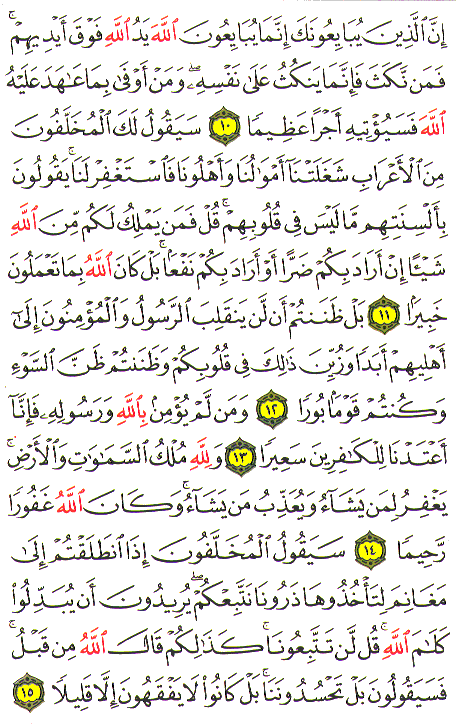 إِنَّ ٱلَّذِينَ يُبَايِعُونَكَ إِنَّمَا يُبَايِعُونَ ٱللَّهَ يَدُ ٱللَّهِ فَوْقَ أَيْدِيهِمْ ۚ
فَمَن نَّكَثَ فَإِنَّمَا يَنكُثُ عَلَىٰ نَفْسِهِۦ ۖ وَمَنْ أَوْفَىٰ بِمَا عَٰهَدَ عَلَيْهُ
ٱللَّهَ فَسَيُؤْتِيهِ أَجْرًا عَظِيمًا ١٠ سَيَقُولُ لَكَ ٱلْمُخَلَّفُونَ
مِنَ ٱلْأَعْرَابِ شَغَلَتْنَآ أَمْوَٰلُنَا وَأَهْلُونَا فَٱسْتَغْفِرْ لَنَا ۚ يَقُولُونَ
بِأَلْسِنَتِهِم مَّا لَيْسَ فِى قُلُوبِهِمْ ۚ قُلْ فَمَن يَمْلِكُ لَكُم مِّنَ ٱللَّهِ
شَيْـًٔا إِنْ أَرَادَ بِكُمْ ضَرًّا أَوْ أَرَادَ بِكُمْ نَفْعًۢا ۚ بَلْ كَانَ ٱللَّهُ بِمَا تَعْمَلُونَ
خَبِيرًۢا ١١ بَلْ ظَنَنتُمْ أَن لَّن يَنقَلِبَ ٱلرَّسُولُ وَٱلْمُؤْمِنُونَ إِلَىٰٓ
أَهْلِيهِمْ أَبَدًا وَزُيِّنَ ذَٰلِكَ فِى قُلُوبِكُمْ وَظَنَنتُمْ ظَنَّ ٱلسَّوْءِ
وَكُنتُمْ قَوْمًۢا بُورًا ١٢ وَمَن لَّمْ يُؤْمِنۢ بِٱللَّهِ وَرَسُولِهِۦ فَإِنَّآ
أَعْتَدْنَا لِلْكَٰفِرِينَ سَعِيرًا ١٣ وَلِلَّهِ مُلْكُ ٱلسَّمَٰوَٰتِ وَٱلْأَرْضِ ۚ
يَغْفِرُ لِمَن يَشَآءُ وَيُعَذِّبُ مَن يَشَآءُ ۚ وَكَانَ ٱللَّهُ غَفُورًا
رَّحِيمًا ١٤ سَيَقُولُ ٱلْمُخَلَّفُونَ إِذَا ٱنطَلَقْتُمْ إِلَىٰ
مَغَانِمَ لِتَأْخُذُوهَا ذَرُونَا نَتَّبِعْكُمْ ۖ يُرِيدُونَ أَن يُبَدِّلُوا۟
كَلَٰمَ ٱللَّهِ ۚ قُل لَّن تَتَّبِعُونَا ۚ كَذَٰلِكُمْ قَالَ ٱللَّهُ مِن قَبْلُ ۖ
فَسَيَقُولُونَ بَلْ تَحْسُدُونَنَا ۚ بَلْ كَانُوا۟ لَا يَفْقَهُونَ إِلَّا قَلِيلًا ١٥